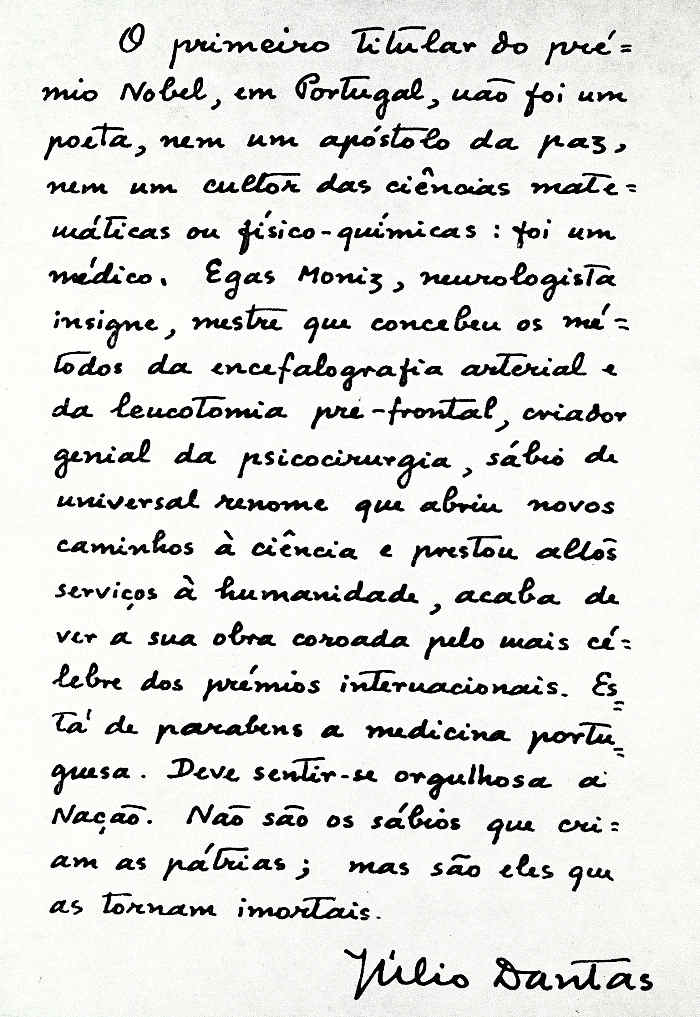 O primeiro titular do pré=
mio Nobel, em Portugal, não foi um
poeta, nem um apóstolo da paz,
nem um cultor das ciências mate=
máticas ou físico-químicas: foi um
médico. Egas Moniz, neurologista
insigne, mestre que concebeu os mé=
todos da encefalografia arterial e
da leucotomia pré-frontal, criador
genial da psicocirurgia, sábio de
universal renome que abriu novos
caminhos à ciência e prestou altos
serviços à humanidade, acaba de
ver a sua obra coroada pelo mais cé=
lebre dos prémios internacionais. Es=
tá de parabens a medicina portu=
guesa. Deve sentir-se orgulhosa a
Nação. Não são os sábios que cri=
am as pátrias; mas são eles que
as tornam imortais.
Júlio Dantas